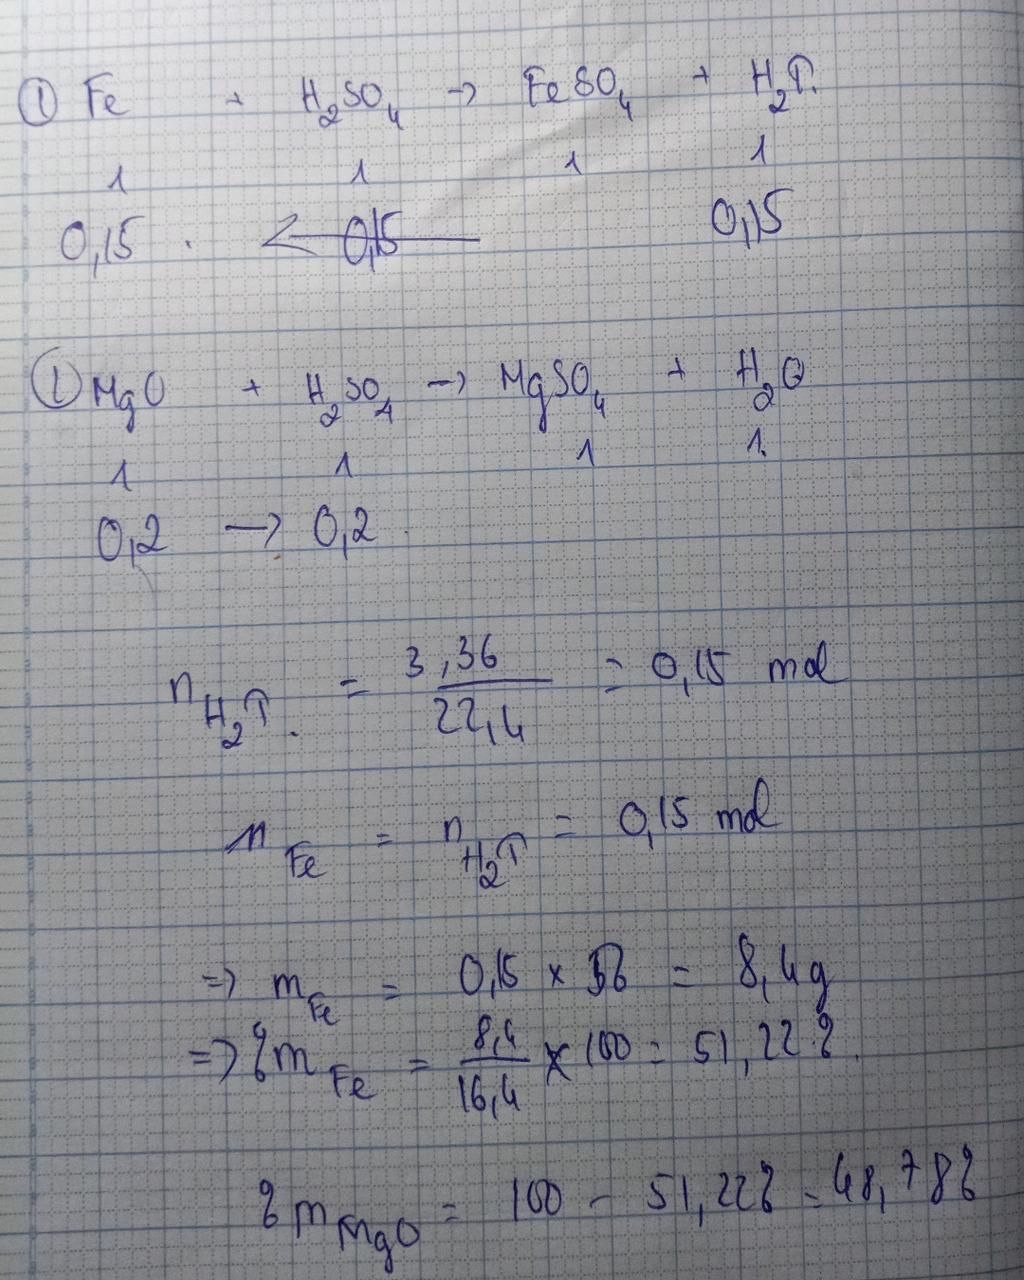 ① Fe + H₂SO₄ → FeSO₄ + H₂↑.
1 1 1 1
0,15 . ← 0,15 0,15
② MgO + H₂SO₄ → MgSO₄ + H₂O
1 1 1 1.
0,2 → 0,2 .
n H₂↑. = 3,36 / 22,4 = 0,15 mol
n Fe = n H₂↑ = 0,15 mol
=> m Fe = 0,15 × 56 = 8,4g
=> % m Fe = 8,4 / 16,4 × 100 = 51,22%.
% m MgO = 100 - 51,22% = 48,78%